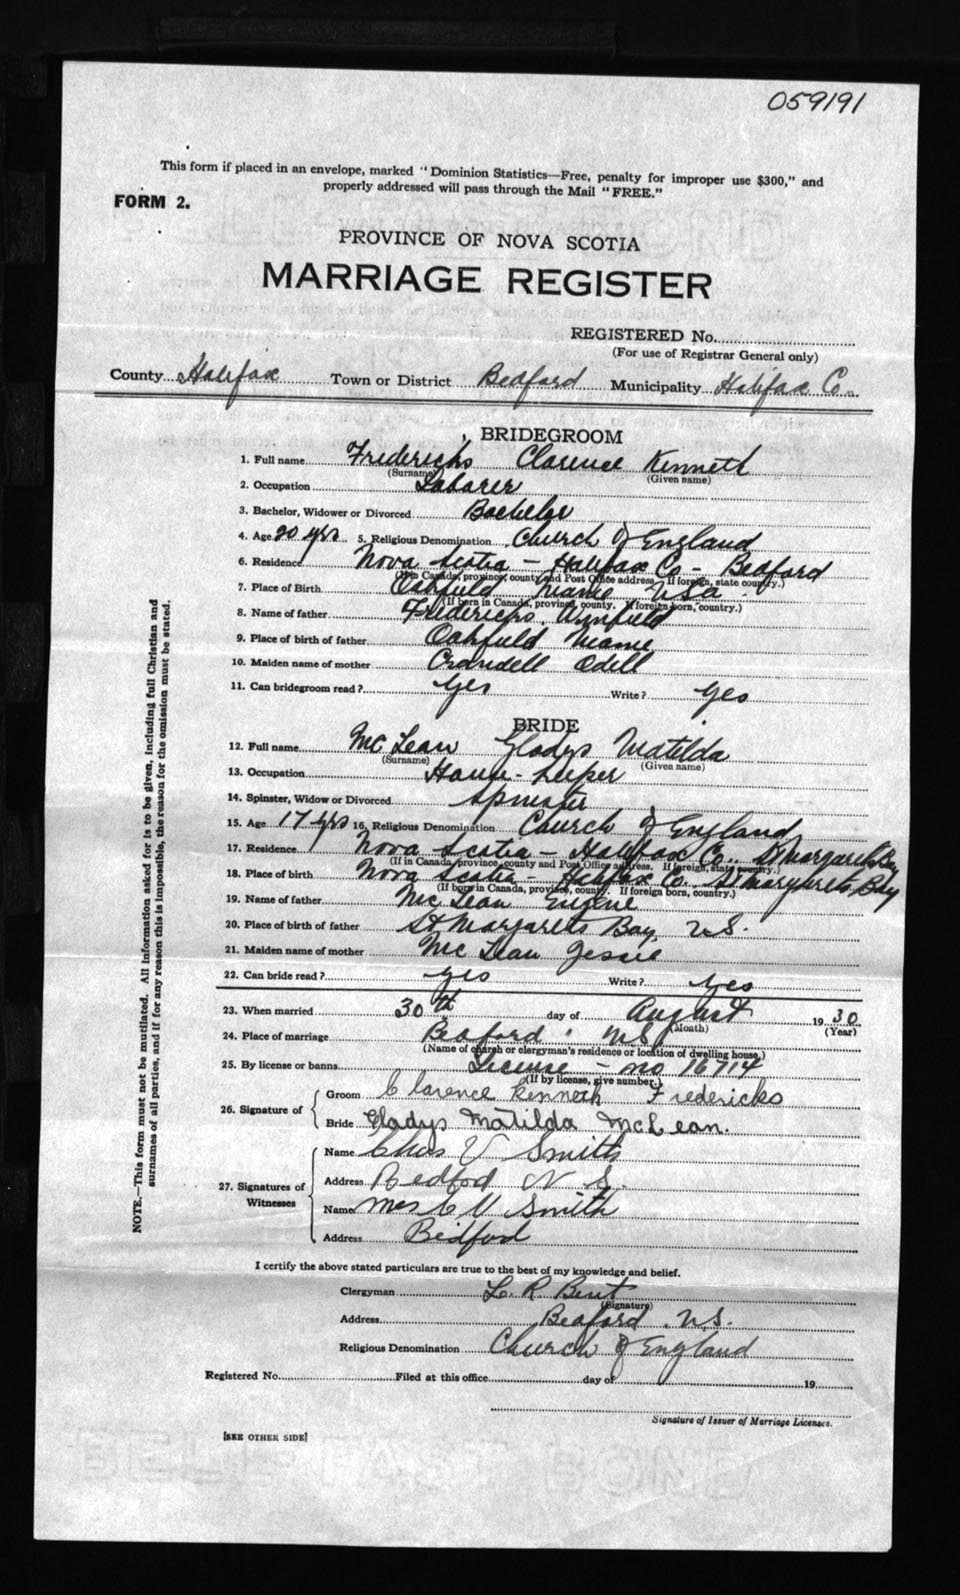 059191
This form if placed in an envelope, marked "Dominion Statistics—Free, penalty for improper use $300," and
properly addressed will pass through the Mail "FREE."
FORM 2.
PROVINCE OF NOVA SCOTIA
MARRIAGE REGISTER
REGISTERED No.
(For use of Registrar General only)
County Halifax Town or District Bedford Municipality Halifax Co.
BRIDEGROOM
1. Full name Fredericks Clarence Kenneth
(Surname) (Given name)
2. Occupation Laborer
3. Bachelor, Widower or Divorced Bachelor
4. Age 20 yrs 5. Religious Denomination Church of England
6. Residence Nova Scotia - Halifax Co - Bedford
(If in Canada, province, county and Post Office address. If foreign, state country.)
7. Place of Birth Oakfield Maine USA
(If born in Canada, province, county. If foreign born, country.)
8. Name of father Fredericks, Winfield
9. Place of birth of father Oakfield Maine
10. Maiden name of mother Crandell Odell
11. Can bridegroom read? Yes Write? Yes
BRIDE
12. Full name McLean Gladys Matilda
(Surname) (Given name)
13. Occupation House-keeper
14. Spinster, Widow or Divorced Spinster
15. Age 17 yrs 16. Religious Denomination Church of England
17. Residence Nova Scotia - Halifax Co. St Margarets Bay
(If in Canada, province, county and Post Office address. If foreign, state country.)
18. Place of birth Nova Scotia - Halifax Co. St Margarets Bay
(If born in Canada, province, county. If foreign born, country.)
19. Name of father McLean Eugene
20. Place of birth of father St Margarets Bay, N.S.
21. Maiden name of mother McLean Jessie
22. Can bride read? Yes Write? Yes
23. When married 30th day of August 1930
(Month) (Year)
24. Place of marriage Bedford, N.S.
(Name of church or clergyman's residence or location of dwelling house.)
25. By license or banns License - no 16714
(If by license, give number.)
26. Signature of Groom Clarence Kenneth Fredericks
Bride Gladys Matilda McLean.
27. Signatures of Witnesses Name Chas V Smith
Address Bedford N S
Name Mrs C V Smith
Address Bedford
I certify the above stated particulars are true to the best of my knowledge and belief.
Clergyman L. R. Bent
(Signature)
Address Bedford. N.S.
Religious Denomination Church of England
Registered No. Filed at this office day of 19
Signature of Issuer of Marriage Licenses.
[SEE OTHER SIDE]
NOTE.—This form must not be mutilated. All information asked for is to be given, including full Christian and
surnames of all parties, and if for any reason this is impossible, the reason for the omission must be stated.